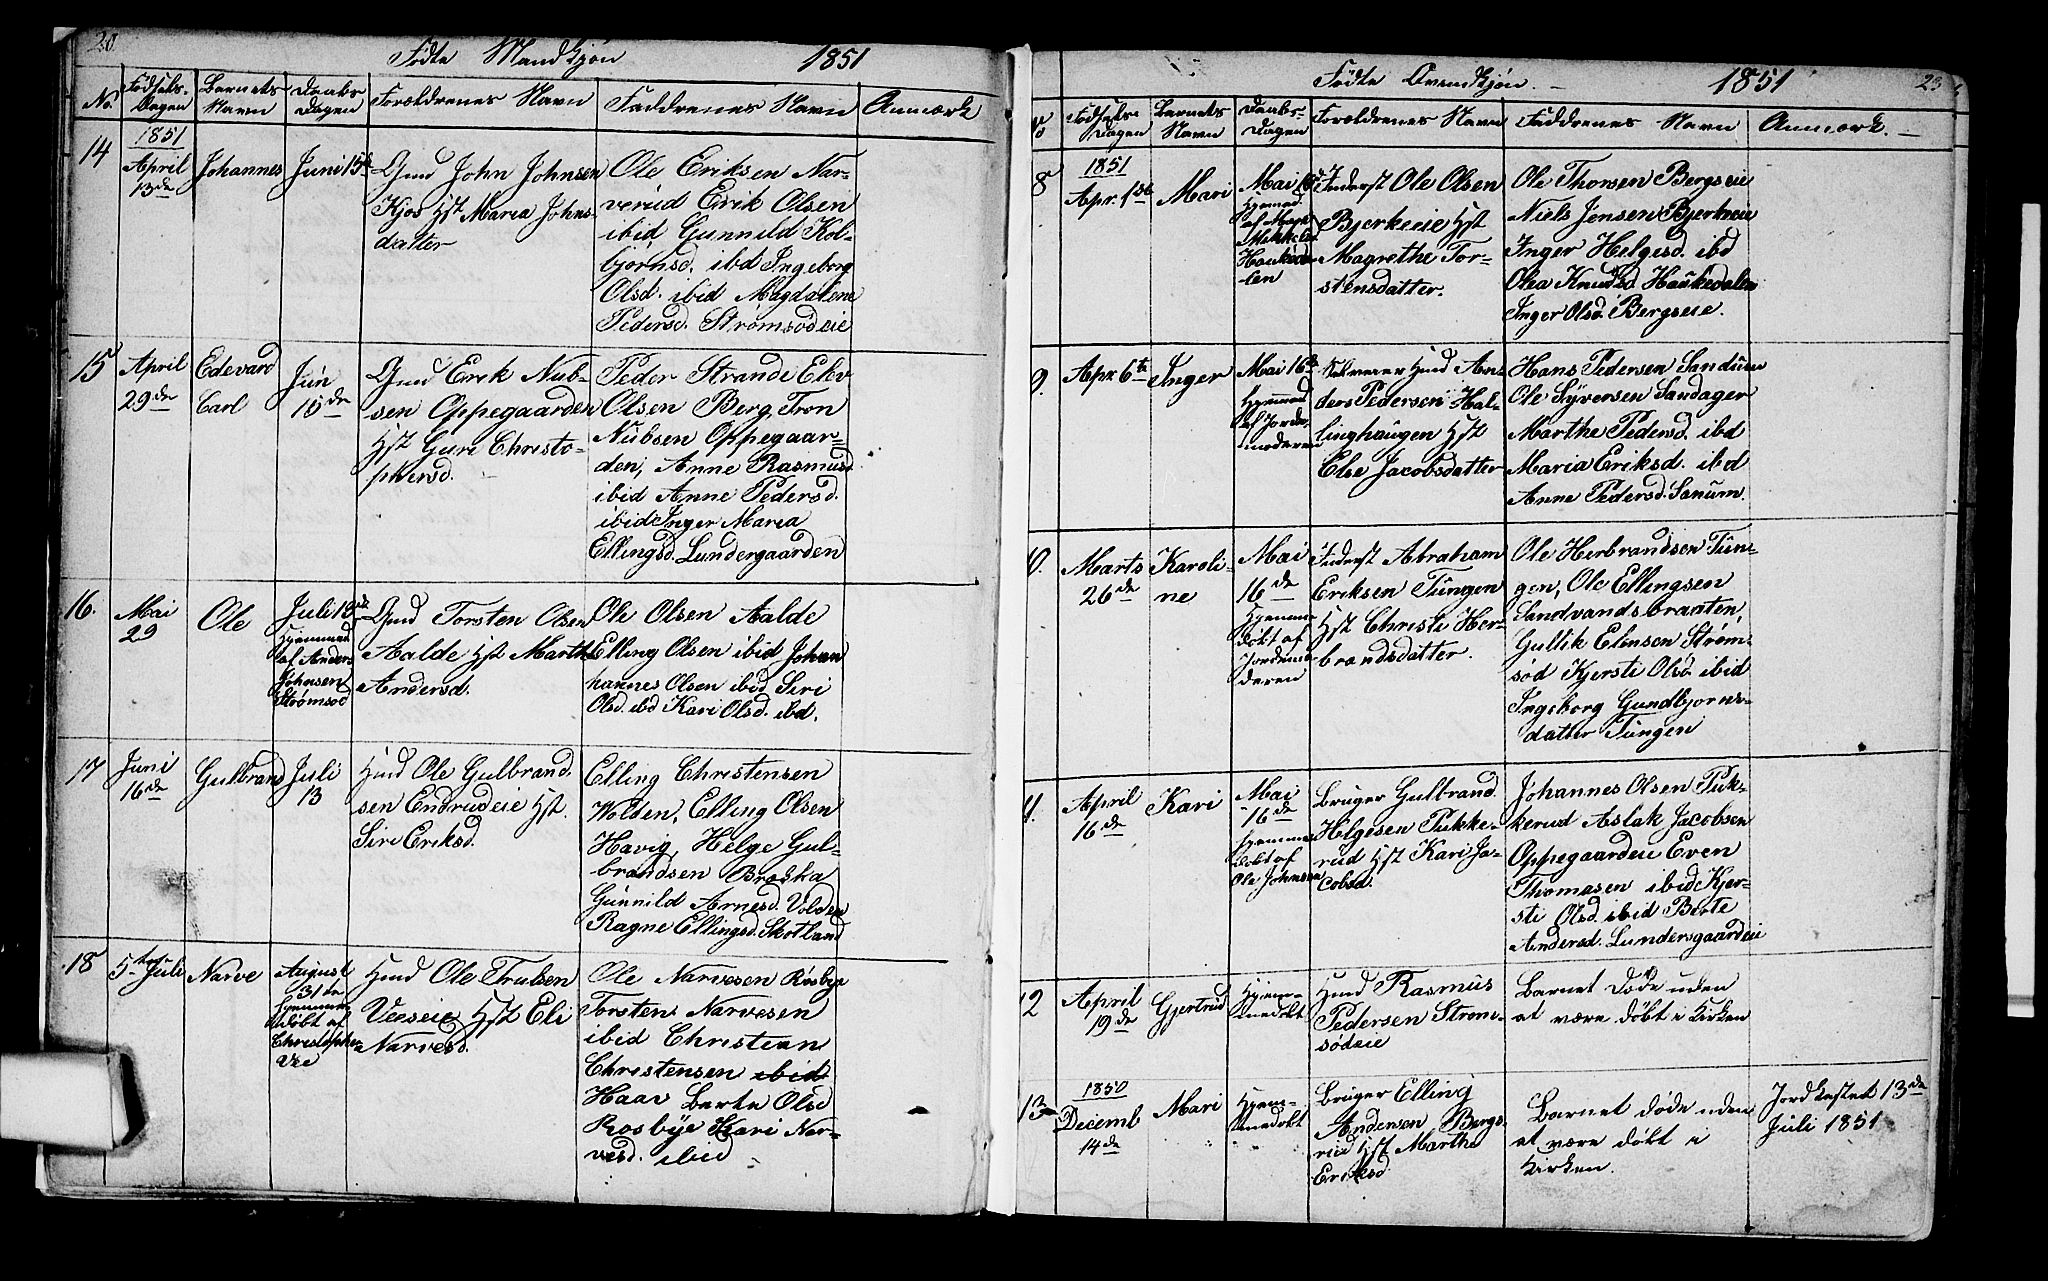 20.
Fødte Mandkjøn 1851
No.
Fødsels-
Dagen
Barnets
Navn
Daabs
Dagen
Forældrenes Navn
Faddrenes Navn
Anmærk
14
1851
April
13de
Johannes
Juni 15de
Gmd John Johnsen
Kjos Hst Maria Johns
datter
Ole Eriksen Nar-
verud Erik Olsen
ibid Gunnild Kol-
bjørnsd. ibd Ingeborg
Olsd. ibid Magdalene
Pedersd. Strømsødeie
15
April
29de
Edevard
Carl
Jun
15de
Gmd Erik Nub-
sen Oppegaarden
Hst Guri Christo-
phersd.
Peder Strande Elev
Olsen Berg Tron
Nubsen Oppegaar-
den, Anne Rasmusd
ibid Anne Pedersd.
ibid Inger Maria
Ellingsd. Lundergaarden
16.
Mai
29
Ole
Juli 13de
Hjemmed
af Anders
Johnsen
Strømsod
Gmd Torsten Olsen
Aalde Hst Marthe
Andersd.
Ole Olsen Aalde
Elling Olsen ibid Johan
hannes Olsen ibid Siri
Olsd. ibd Kari Olsd. ibd.
17
Juni
16de
Gulbrand
Juli
13
Hmd Ole Gulbrand.
sen Endrudeie Hst.
Siri Eriksd.
Elling Christensen
Wolden, Elling Olsen
Havig, Helge Gul-
brandsen Braska
Gunnild Arnesd. Volden
Ragne Ellingsd. Skotland
18
5te Juli
Narve
August
31te
Hjemme
døbt af
Christopher
Vee
Hmd Ole Trulsen
Veeseie Hst Eli
Narvesd.
Ole Narvesen Rosbye
Torsten Narvesen
ibid Christian
Christensen ibid
Haar Berte Olsd
Rosbye Kari Nar-
vesd. ibid
Fødte Qvendkjøn. 1851 23
No
Fødsels
Dagen
Barnets
Navn
Daabs-
Dagen
Forældrenes Navn
Faddrenes Navn
Anmærk.
8
1851
Apr. 1ste
Mari
Mai
Hjemmed
af
Mikkels
Haukeda
len
Inderst Ole Olsen
Bjerkeeie Hst
Magrethe Tor-
stensdatter.
Ole Thorsen Bergseie
Niels Jensen Bjerkeeie
Inger Helgesd. ibd
Olea Knudsd Haukedalen
Inger Olsd. Bergseie.
9.
Apr. 6te
Inger
Mai 16de
Hjemmed
af Jorde
moderen
Selveier Hmd An-
ders Pedersen Hal-
linghaugen Hst
Else Jacobsdatter
Hans Pedersen Sandum
Ole Syversen Sandager
Marthe Pedersd. ibd
Maria Eriksd. ibd
Anne Pedersd. Sanum
10.
Marts
26de
Karoli-
ne
Mai
16de
Hjemme
døbt af
Jordemo
deren
Inderst Abraham
Eriksen Tungen
Hst Christi Her-
brandsdatter.
Ole Herbrandsen Tun-
gen, Ole Ellingsen
Sandvandsbraaten,
Gullik Elensen Strøm-
sød Kjersti Olsd ibid
Ingeborg Gundbjorns-
datter Tungen
11.
April
16de
Kari
Mai
16de
Hjemme
døbt af
Ole Johnsen
Bruger Gulbrand
Helgesen Pukke-
rud Hst Kari Ja-
cobsd.
Johannes Olsen Puk-
kerud Aslak Jacobsen
Oppegaardeie Even
Thomasen ibid Kjer-
sti Olsd. ibid Berte
Andersd. Lundersgaardeie
12
April
19de
Gjertrud
Hjem-
medøbt
Hmd Rasmus
Pedersen Strøm-
sødeie
Barnet døde uden
at være døbt i Kirken
13
1850
Decemb
14de
Mari
Hjem-
medøbt
Bruger Elling
Andersen Bergs
rud Hst Marthe
Eriksd
Barnet døde uden
at være døbt i
Kirken.
Jordkastet 13de
Juli 1851